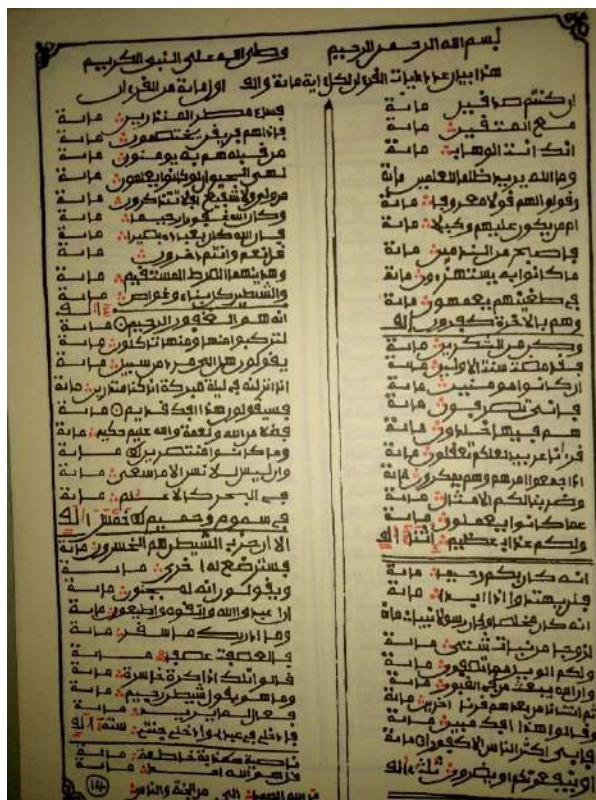 بسم الله الرحمن الرحيم وصلى الله على النبي الكريم
هذا بيان عدد ايات القرءان لكل اية مائة والف اول مائة من القرءان
ان كنتم صادقين مائة
مع المتقين مائة
انك انت الوهاب مائة
وما الله يريد ظلما للعلمين مائة
وقولوا لهم قولا معروفا مائة
ام من يكون عليهم وكيلا مائة
فاصبح من الندمين مائة
ما كانوا به يستهزءون مائة
في طغينهم يعمهون مائة
وهم بالاخرة كفرون الف
وكن من الشكرين مائة
فقد مضت سنت الاولين مائة
ان كانوا مومنين مائة
فانى تصرفون مائة
هم فيها خلدون مائة
قرءنا عربيا لعلكم تعقلون مائة
اذ اجمعوا امرهم وهم يمكرون مائة
وضربنا لكم الامثال مائة
عما كانوا يعملون مائة
ولكم عذاب عظيم الف
انه كان بكم رحيما مائة
فلن يهتدوا اذا ابدا مائة
انه كان مخلصا وكان رسولا نبيا مائة
ازوجا من نبات شتى مائة
ولكم الويل مما تصفون مائة
وان الله يبعث من في القبور مائة
ثم انشانا من بعدهم قرنا اخرين مائة
وقالوا هذا افك مبين مائة
فابى اكثر الناس الا كفورا مائة
او ينفعونكم او يضرون الف
فساء مطر المنذرين مائة
فاذا هم فريقن يختصمون مائة
من قبله هم به يومنون مائة
لهي الحيوان لو كانوا يعلمون مائة
من ولي ولا شفيع افلا تتذكرون مائة
وكان الله غفورا رحيما مائة
فان الله كان بعباده بصيرا مائة
قل نعم وانتم دخرون مائة
وهدينهما الصرط المستقيم مائة
والشيطين كل بناء وغواص مائة
انه هو الغفور الرحيم مائة
لتركبوا منها ومنها تاكلون مائة
يقولون هل الى مرد من سبيل مائة
انا انزلنه في ليلة مبركة انا كنا منذرين مائة
فسيقولون هذا افك قديم مائة
فضلا من الله ونعمة والله عليم حكيم مائة
وما كانوا منتصرين مائة
وان ليس للانسن الا ما سعى مائة
في البحر كالاعلم مائة
في سموم وحميم الف
الا ان حزب الشيطن هم الخسرون مائة
فسترضع له اخرى مائة
ويقولون انه لمجنون مائة
ان اعبدوا الله واتقوه واطيعون مائة
وما ادريك ما سقر مائة
فالعصفت عصفا مائة
قالوا تلك اذا كرة خاسرة مائة
وما هو بقول شيطن رجيم مائة
فعال لما يريد مائة
فادخلي في عبدي وادخلي جنتي الف
ناصية كذبة خاطئة مائة